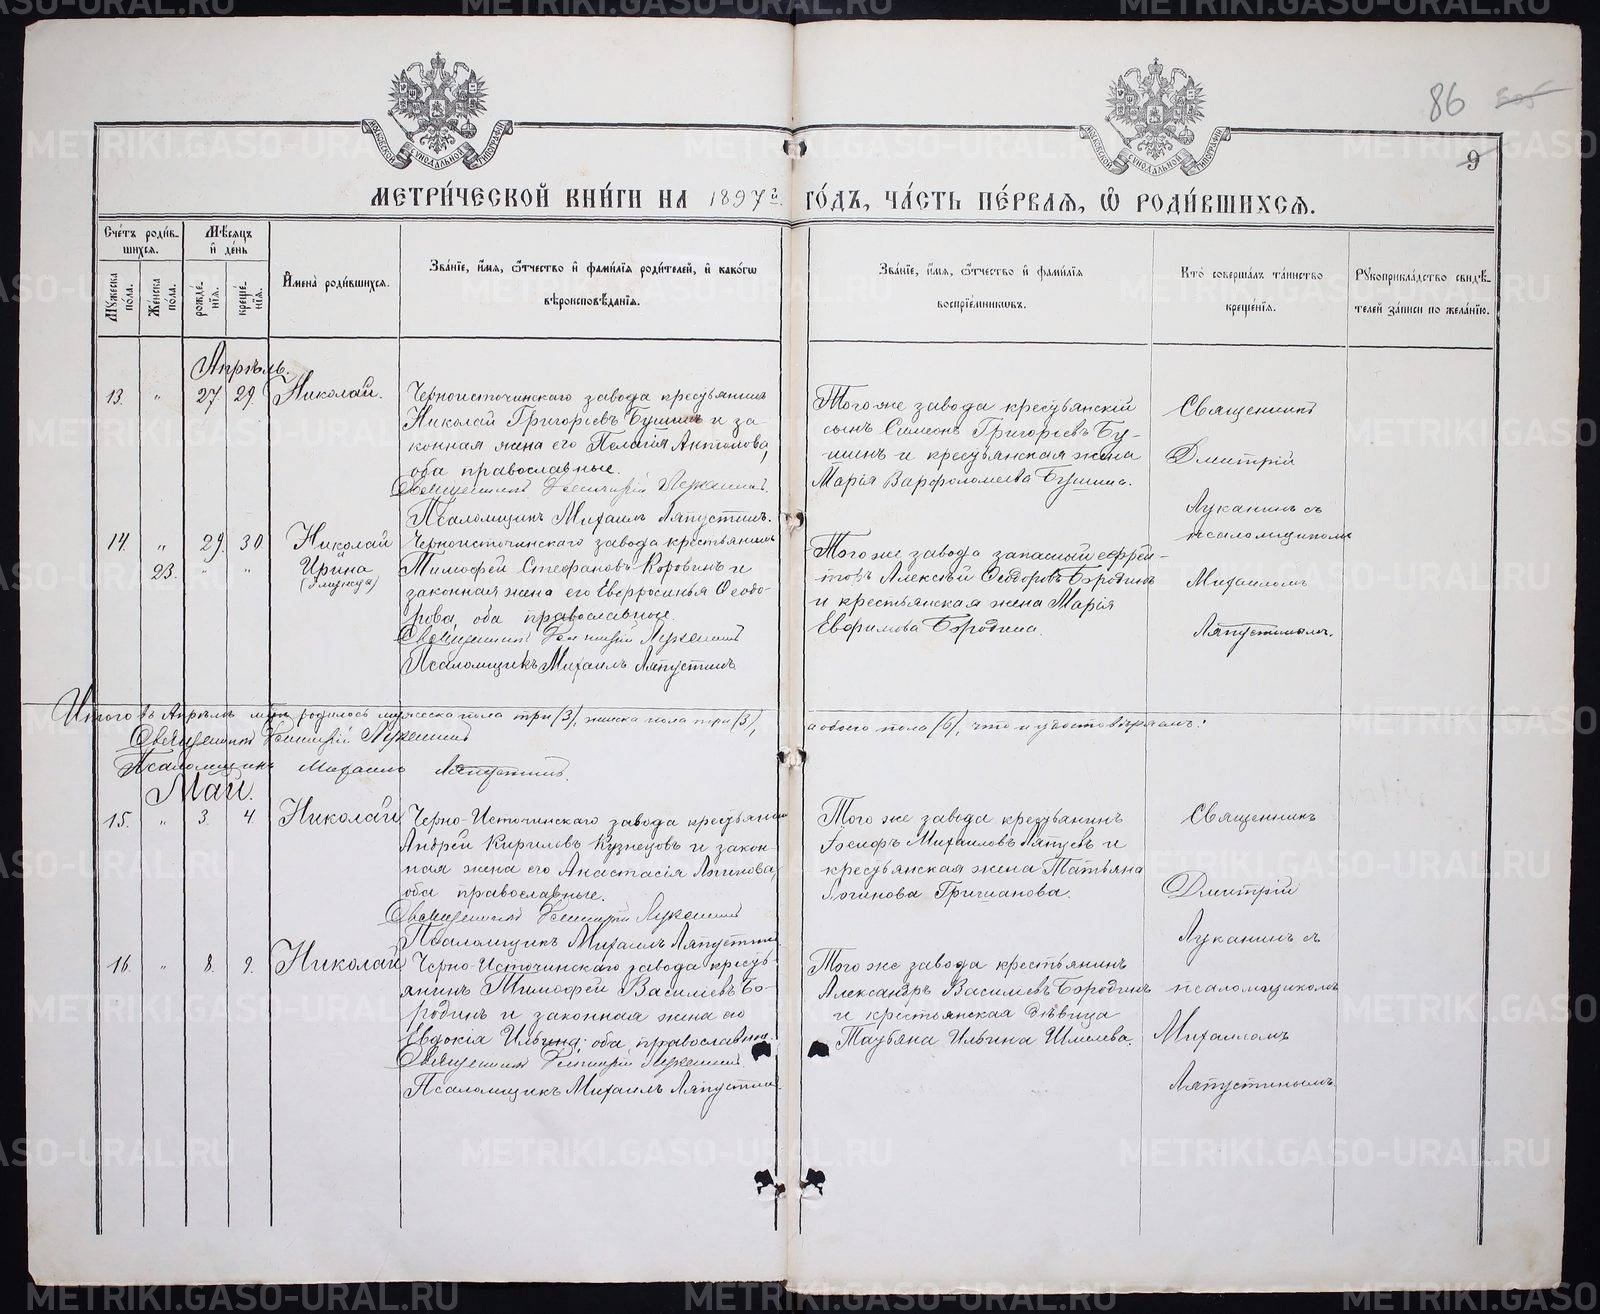 86 505
9
МОСКОВСКОЙ СУНОДАЛЬНОЙ ТИПОГРАФІИ
МОСКОВСКОЙ СУНОДАЛЬНОЙ ТИПОГРАФІИ
МЕТРИ́ЧЕСКОЙ КНИ́ГИ НА 1897й ГО́ДЪ, ЧА́СТЬ ПЕ́РВАЯ, Ѡ РОДИ́ВШИХСЯ.
Сче́тъ роди́вшихся.
Мѣ́сяцъ и де́нь
Мꙋжеска по́ла.
Же́нска по́ла.
рожде́нїя.
креще́нїя.
Имена̀ роди́вшихся.
Зва́нїе, и́мя, ѻ҆́тчество и҆ фами́лїя роди́телей, и҆ како́гѡ вѣроисповѣ́данїя.
Зва́нїе, и́мя, ѻ҆́тчество и҆ фами́лїя воспрїе́мникωвъ.
Кто̀ соверша́лъ та́инство креще́нїя.
Рꙋкоприкла́дство свидѣ́телей за́писи по жела́нїю.
Апрѣль.
13. " 27 29. Николай.
Черноисточинскаго завода крестьянинъ
Николай Григорьевъ Бушинъ и за-
конная жена его Пелагія Антонова,
оба православные.
Священникъ Димитрій Луканинъ.
Псаломщикъ Михаилъ Ляпустинъ.
Того же завода крестьянскій
сынъ Симеонъ Григорьевъ Бу-
шинъ и крестьянская жена
Марія Варфоломеева Бушина.
Священникъ
Дмитрій
Луканинъ съ
псаломщикомъ
Михаиломъ
Ляпустинымъ.
14. " 29. 30. Николай
23. " " Ирина
(близнецы)
Черноисточинскаго завода крестьянинъ
Тимофей Стефановъ Коровинъ и
законная жена его Евфросинья Ѳеодо-
рова, оба православные.
Священникъ Димитрій Луканинъ
Псаломщикъ Михаилъ Ляпустинъ
Того же завода запасный ефрей-
торъ Алексѣй Ѳеодоровъ Бородинъ
и крестьянская жена Марія
Евфимова Бородина.
Итого въ Апрѣлѣ м-цѣ родилось мужеска пола три (3), женска пола три (3), а обоего пола (6), что и удостовѣряемъ:
Священникъ Димитрій Луканинъ
Псаломщикъ Михаилъ Ляпустинъ.
Май.
15. " 3. 4. Николай
Черно-Источинскаго завода крестьянинъ
Андрей Кириловъ Кузнецовъ и закон-
ная жена его Анастасія Логинова,
оба православные.
Священникъ Димитрій Луканинъ
Псаломщикъ Михаилъ Ляпустинъ
Того же завода крестьянинъ
Іосифъ Михаиловъ Ляпцевъ и
крестьянская жена Татьяна
Логинова Гричанова.
Священникъ
Дмитрій
Луканинъ съ
псаломщикомъ
Михаиломъ
Ляпустинымъ
16. " 8. 9. Николай
Черно-Источинскаго завода кресть-
янинъ Тимофей Василіевъ Бо-
родинъ и законная жена его
Евдокія Ильина; оба православные.
Священникъ Димитрій Луканинъ.
Псаломщикъ Михаилъ Ляпустинъ
Того же завода крестьянинъ
Александръ Василіевъ Бородинъ
и крестьянская дѣвица
Татьяна Ильина Шмелева.
METRIKI.GASO-URAL.RU